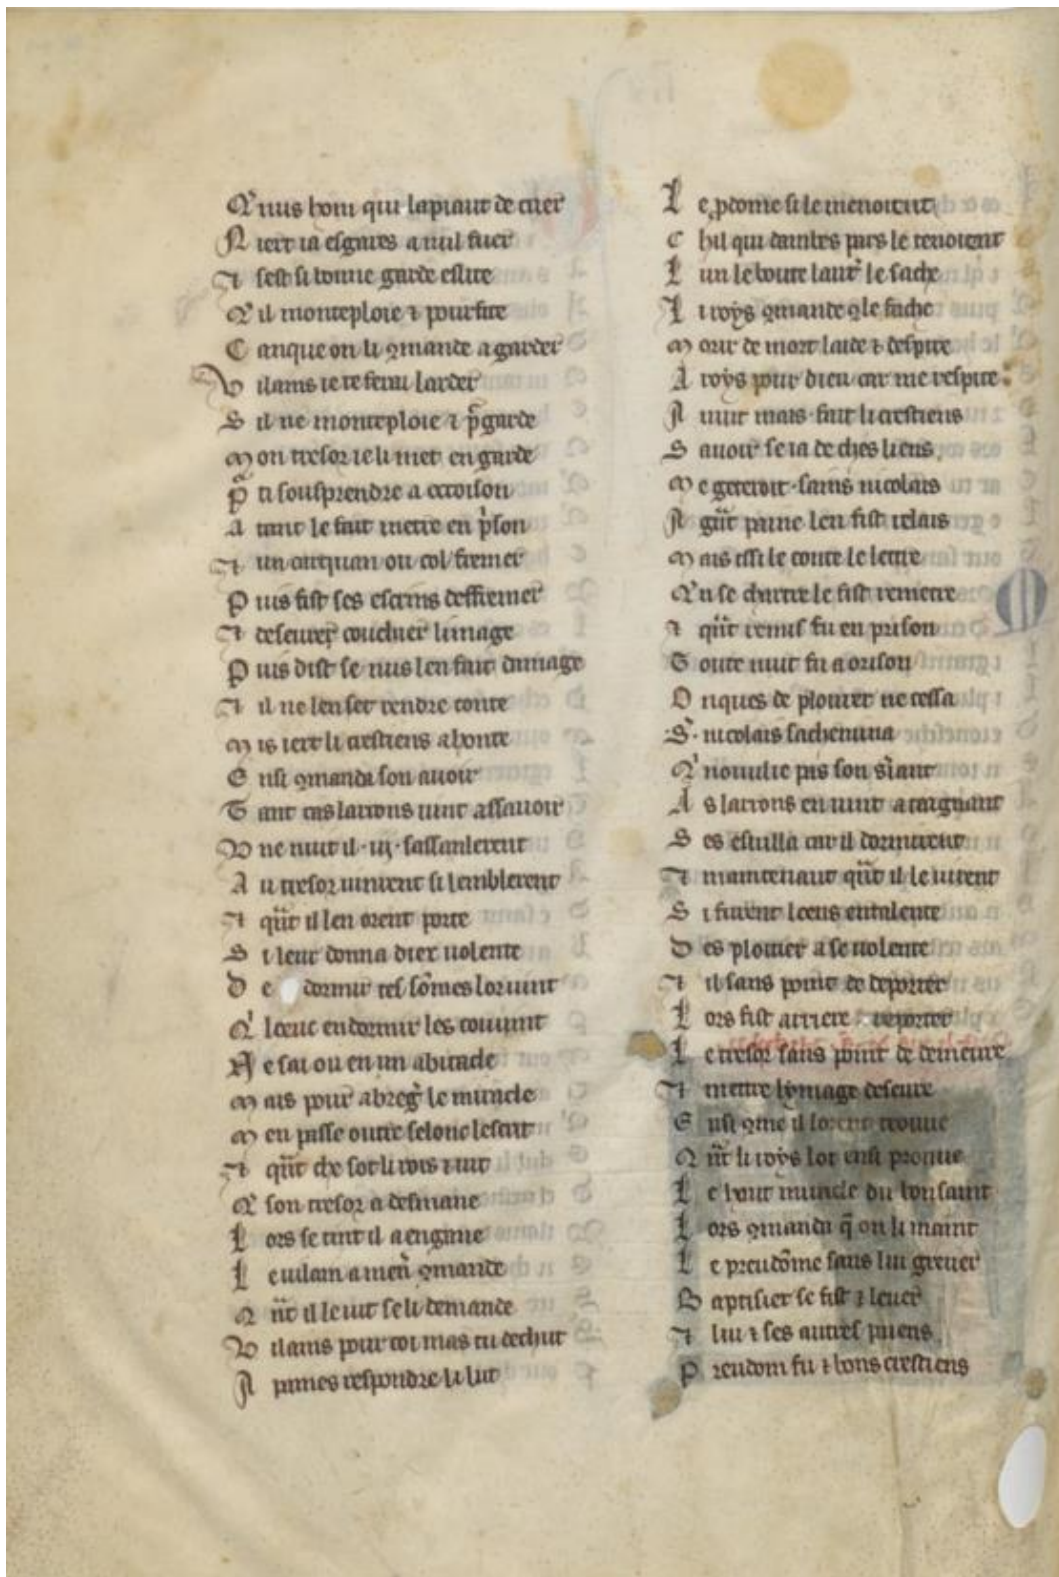 Q nus hom qui lapiaut de cuer
N iert ia esgares a nul fuer
⁊ sest si bonne garde eslite
Q' il monteploie ⁊ pourfite
C anque on li ꝯmande a garder
V ilains ie te ferai larder
S il ne monteploie ⁊ p̃garde
M on tresor ie li met en garde
P ti sousprendre a ocoison
A tant le fait metre en p̓son
⁊ un carquan ou col fremer
P uis fist ses escrins deffremer
⁊ deseure couchier limage
P uis dist se nus len fait damage
⁊ il ne len set rendre conte
M is iert li crestiens a honte
E nsi ꝯmanda son auoir
T ant cas larrons uint assauoir
V ne nuit il .iij. sassanlerent
A u tresor uinrent si lemblerent
⁊ qũt il len orent porte
S i leur donna diex uolente
D e dormir tel sõmes lor uint
Q' lœuc endormir les couuint
N e sai ou en un abitacle
M ais pour abreg̓ le miracle
M en passe outre selonc lescrit
⁊ qũt che sot li rois ⁊ uit
Q son tresor a desmane
L ors se tint il a engane
L e uilain amen̓ ꝯmande
Q ñt il le uit se li demande
V ilains pour coi mas tu dechut
A paines respondre li lut
L e p̱dome si le menoient
C hil qui dambes pars le tenoient
L un le boute lautr̓ le sache
L i roys ꝯmande ꝯle sache
M orir de mort laide ⁊ despite
A roys pour dieu car me respite
A nuit mais fait li crestiens
S auoir se ia de ches liens
M e geteroit sains nicolais
A gñt paine len fist relais
M ais issi le conte le letre
Q'n se chartre le fist remetre
⁊ qũt remis fu en prison
T oute nuit fu a orison
O nques de plourer ne cessa
.S. nicolais sachemina
Q' n'oublie pas son s̓iant
A s larrons en uint atargnant
S es esuilla car il dormirent
⁊ maintenant qũt il le uirent
S i furent lœus entalente
D es ploitier a se uolente
⁊ il sans point de deporter
L ors fist arriere reporter
L e tresor sans point de demeure
⁊ mettre lymage deseure
E nsi ꝯme il lorent trouue
Q ñt li roys lot ensi proune
L e haut miracle du bon saint
L ors ꝯmanda q̃ on li maint
L e preudõme sans lui greuer
B aptisier se fist ⁊ leuer
⁊ lui ⁊ ses autres paiens
P reudom fu ⁊ bons crestiens